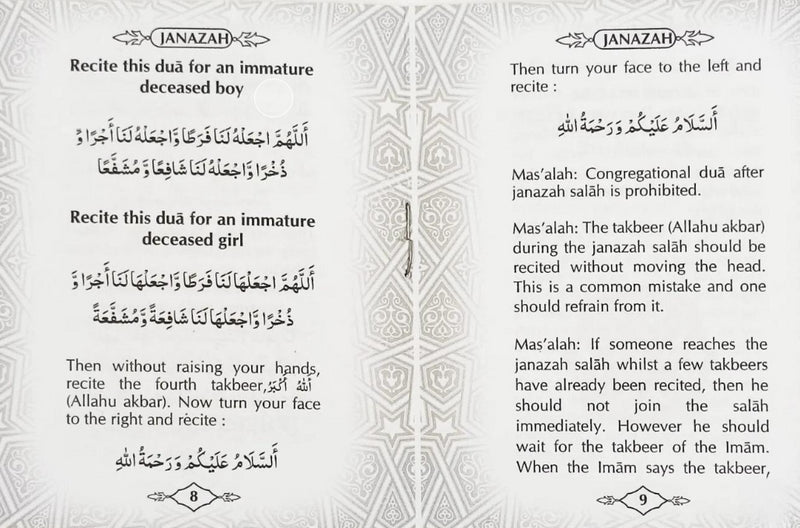 JANAZAH
Recite this duā for an immature
deceased boy
أَللّٰهُمَّ اجْعَلْهُ لَنَا فَرَطًا وَّاجْعَلْهُ لَنَا أَجْرًا وَّ
ذُخْرًا وَّاجْعَلْهُ لَنَا شَافِعًا وَّمُشَفَّعًا
Recite this duā for an immature
deceased girl
أَللّٰهُمَّ اجْعَلْهَا لَنَا فَرَطًا وَّاجْعَلْهَا لَنَا أَجْرًا وَّ
ذُخْرًا وَّاجْعَلْهَا لَنَا شَافِعَةً وَّمُشَفَّعَةً
Then without raising your hands,
recite the fourth takbeer, اَللهُ اَكْبَرُ
(Allahu akbar). Now turn your face
to the right and recite :
أَلسَّلَامُ عَلَيْكُمْ وَرَحْمَةُ اللهِ
8
JANAZAH
Then turn your face to the left and
recite :
أَلسَّلَامُ عَلَيْكُمْ وَرَحْمَةُ اللهِ
Mas'alah: Congregational duā after
janazah salāh is prohibited.
Mas'alah: The takbeer (Allahu akbar)
during the janazah salāh should be
recited without moving the head.
This is a common mistake and one
should refrain from it.
Mas'alah: If someone reaches the
janazah salāh whilst a few takbeers
have already been recited, then he
should not join the salāh
immediately. However he should
wait for the takbeer of the Imām.
When the Imām says the takbeer,
9